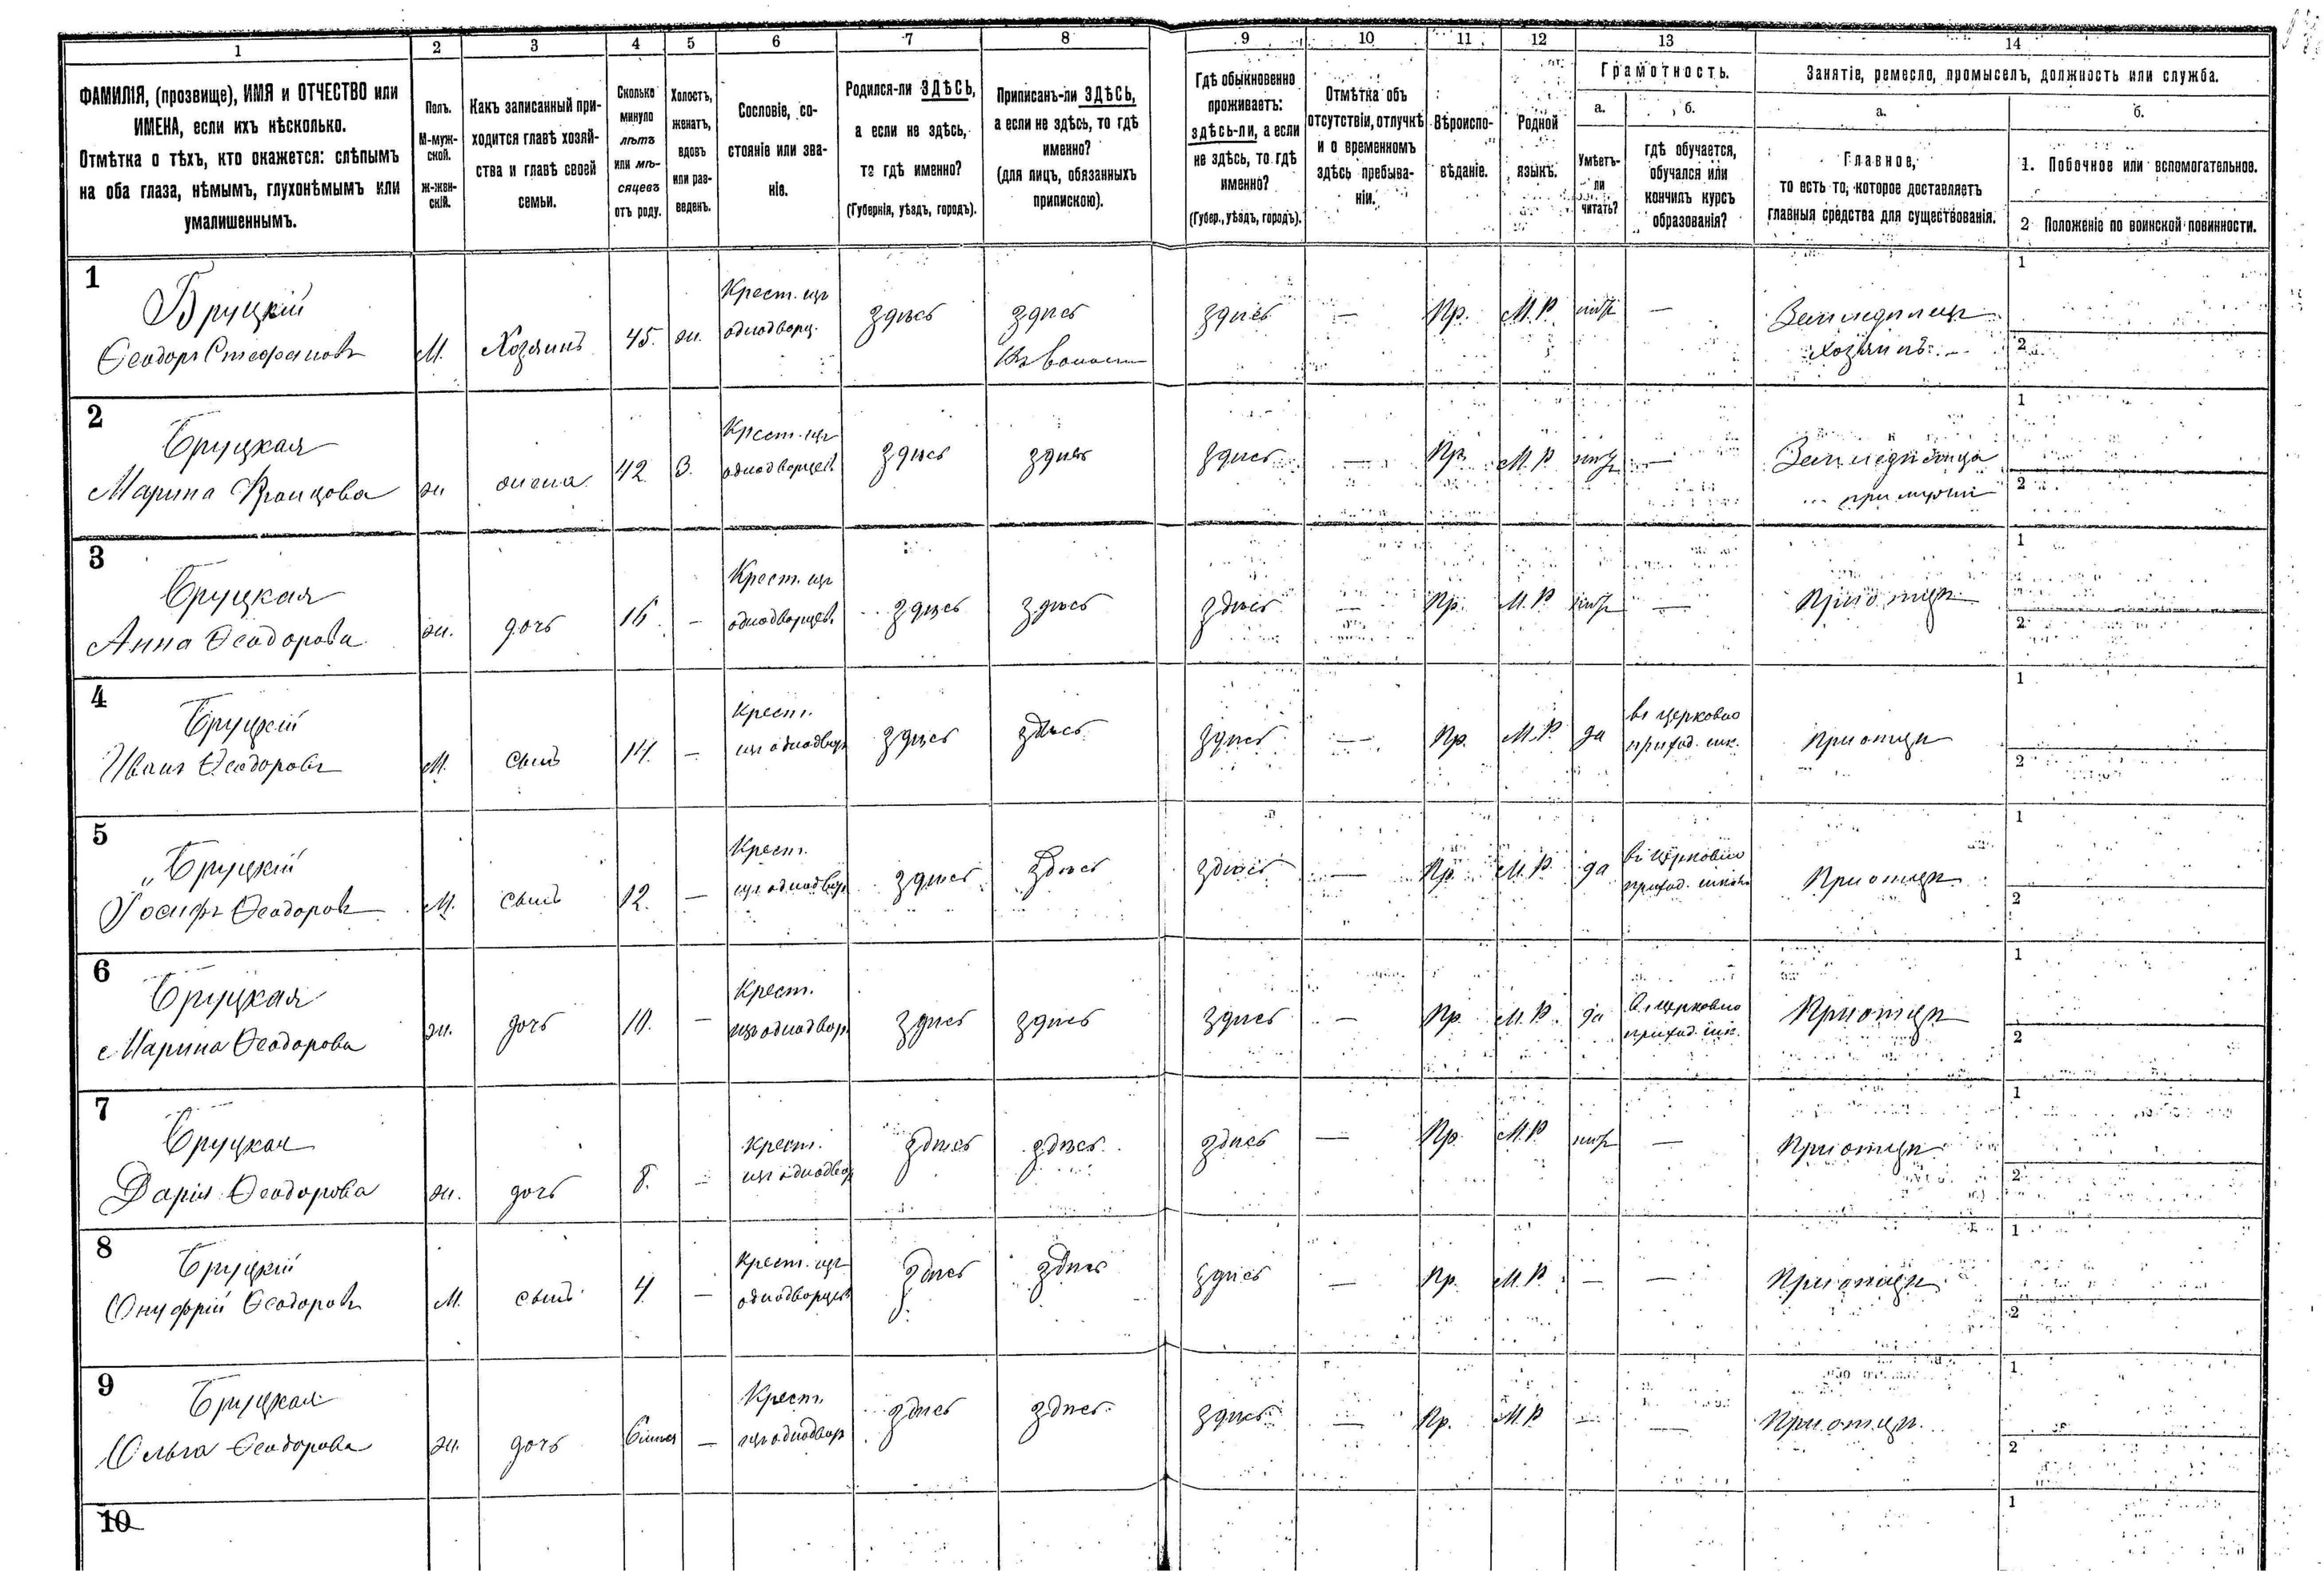 1 2 3 4 5 6 7 8 9 10 11 12 13 14
ФАМИЛІЯ, (прозвище), ИМЯ и ОТЧЕСТВО или
ИМЕНА, если ихъ нѣсколько.
Отмѣтка о тѣхъ, кто окажется: слѣпымъ
на оба глаза, нѣмымъ, глухонѣмымъ или
умалишеннымъ.
Полъ.
М-муж-
ской.
Ж-жен-
скій.
Какъ записанный при-
ходится главѣ хозяй-
ства и главѣ своей
семьи.
Сколько
минуло
лѣтъ
или мѣ-
сяцевъ
отъ роду.
Холостъ,
женатъ,
вдовъ
или раз-
веденъ.
Сословіе, со-
стояніе или зва-
ніе.
Родился-ли ЗДѢСЬ,
а если не здѣсь,
то гдѣ именно?
(Губернія, уѣздъ, городъ).
Приписанъ-ли ЗДѢСЬ,
а если не здѣсь, то гдѣ
именно?
(для лицъ, обязанныхъ
припискою).
Гдѣ обыкновенно
проживаетъ:
здѣсь-ли, а если
не здѣсь, то гдѣ
именно?
(Губер., уѣздъ, городъ).
Отмѣтка объ
отсутствіи, отлучкѣ
и о временномъ
здѣсь пребыва-
ніи.
Вѣроиспо-
вѣданіе.
Родной
языкъ.
Грамотность.
а.
Умѣетъ-
ли
читать?
б.
гдѣ обучается,
обучался или
кончилъ курсъ
образованія?
Занятіе, ремесло, промыселъ, должность или служба.
а.
Главное,
то есть то, которое доставляетъ
главныя средства для существованія.
б.
1. Побочное или вспомогательное.
2 Положеніе по воинской повинности.
1
Бруцкій
Ѳеодоръ Стефановъ
М. Хозяинъ 45. ж.
Крест. изъ
однодворц.
здѣсь
здѣсь
здѣсь — Пр. М.Р. нѣтъ —
Земледѣлецъ
хозяинъ
1
2
2
Бруцкая
Марина
ж жена 42. З.
Крест. изъ
однодворцев.
здѣсь здѣсь здѣсь — Пр. М.Р. нѣтъ —
при мужѣ
1
2
3
Бруцкая
Анна Ѳеодорова
ж. дочь 16. —
Крест. изъ
однодворцев.
здѣсь здѣсь здѣсь — Пр. М.Р. нѣтъ — При отцѣ
1
2
4
Бруцкій
Иванъ Ѳеодоровъ
М. сынъ 14. —
Крест.
изъ однодвор.
здѣсь здѣсь здѣсь — Пр. М.Р. да
въ церковно
приход. шк.
При отцѣ
1
2
5
Бруцкій
Іосифъ Ѳеодоровъ
М. сынъ 12. —
Крест.
изъ однодвор.
здѣсь здѣсь здѣсь — Пр. М.Р. да
въ церковно
приход. школ.
При отцѣ
1
2
6
Бруцкая
Марина Ѳеодорова
ж. дочь 10. —
Крест.
изъ однодвор.
здѣсь здѣсь здѣсь — Пр. М.Р. да
въ церковно
приход. шк.
При отцѣ
1
2
7
Бруцкая
Дарія Ѳеодорова
ж. дочь 8. —
Крест.
изъ однодвор
здѣсь здѣсь здѣсь — Пр. М.Р. нѣтъ — При отцѣ
1
2
8
Бруцкій
Онуфрій Ѳеодоровъ
М. сынъ 4. —
Крест. изъ
однодворцев
здѣсь здѣсь здѣсь — Пр. М.Р. — — При отцѣ
1
2
9
Бруцкая
Ольга Ѳеодорова
ж. дочь —
Крест.
изъ однодвор
здѣсь здѣсь здѣсь — Пр. М.Р. — — При отцѣ
1
2
10
1